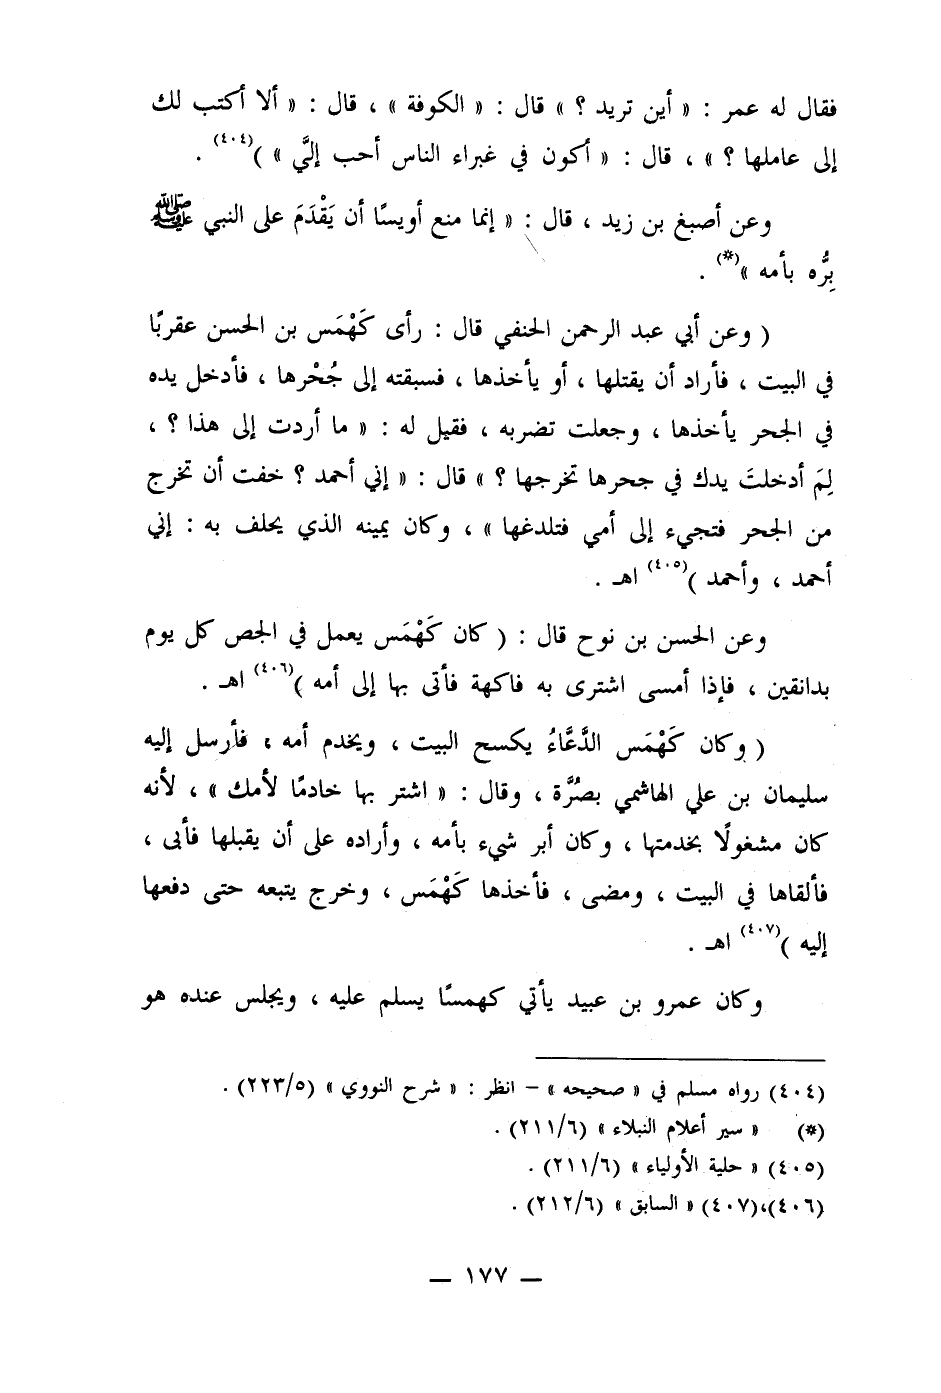 فقال له عمر : « أين تريد ؟ » قال : « الكوفة » ، قال : « ألا أكتب لك
إلى عاملها ؟ » ، قال : « أكون في غبراء الناس أحب إليَّ » )(٤٠٤) .
وعن أصبغ بن زيد ، قال : « إنما منع أويسًا أن يَقْدَمَ على النبي ﷺ
بِرُّه بأمه »(*) .
( وعن أبي عبد الرحمن الحنفي قال : رأى كَهْمَس بن الحسن عقربًا
في البيت ، فأراد أن يقتلها ، أو يأخذها ، فسبقته إلى جُحْرها ، فأدخل يده
في الجحر يأخذها ، وجعلت تضربه ، فقيل له : « ما أردت إلى هذا ؟ ،
لِمَ أدخلتَ يدك في جحرها تخرجها ؟ » قال : « إني أحمد ؟ خفت أن تخرج
من الجحر فتجيء إلى أمي فتلدغها » ، وكان يمينه الذي يحلف به : إني
أحمد ، وأحمد )(٤٠٥) اهـ .
وعن الحسن بن نوح قال : ( كان كَهْمَس يعمل في الجص كل يوم
بدانقين ، فإذا أمسى اشترى به فاكهة فأتى بها إلى أمه )(٤٠٦) اهـ .
( وكان كَهْمَس الدَّعَّاءُ يكسح البيت ، ويخدم أمه ، فأرسل إليه
سليمان بن علي الهاشمي بصُرَّة ، وقال : « اشتر بها خادمًا لأمك » ، لأنه
كان مشغولًا بخدمتها ، وكان أبر شيء بأمه ، وأراده على أن يقبلها فأبى ،
فألقاها في البيت ، ومضى ، فأخذها كَهْمَس ، وخرج يتبعه حتى دفعها
إليه )(٤٠٧) اهـ .
وكان عمرو بن عبيد يأتي كهمسًا يسلم عليه ، ويجلس عنده هو
(٤٠٤) رواه مسلم في « صحيحه » – انظر : « شرح النووي » (٢٢٣/٥) .
(*) « سير أعلام النبلاء » (٢١١/٦) .
(٤٠٥) « حلية الأولياء » (٢١١/٦) .
(٤٠٦)،(٤٠٧) « السابق » (٢١٢/٦) .
— ١٧٧ —